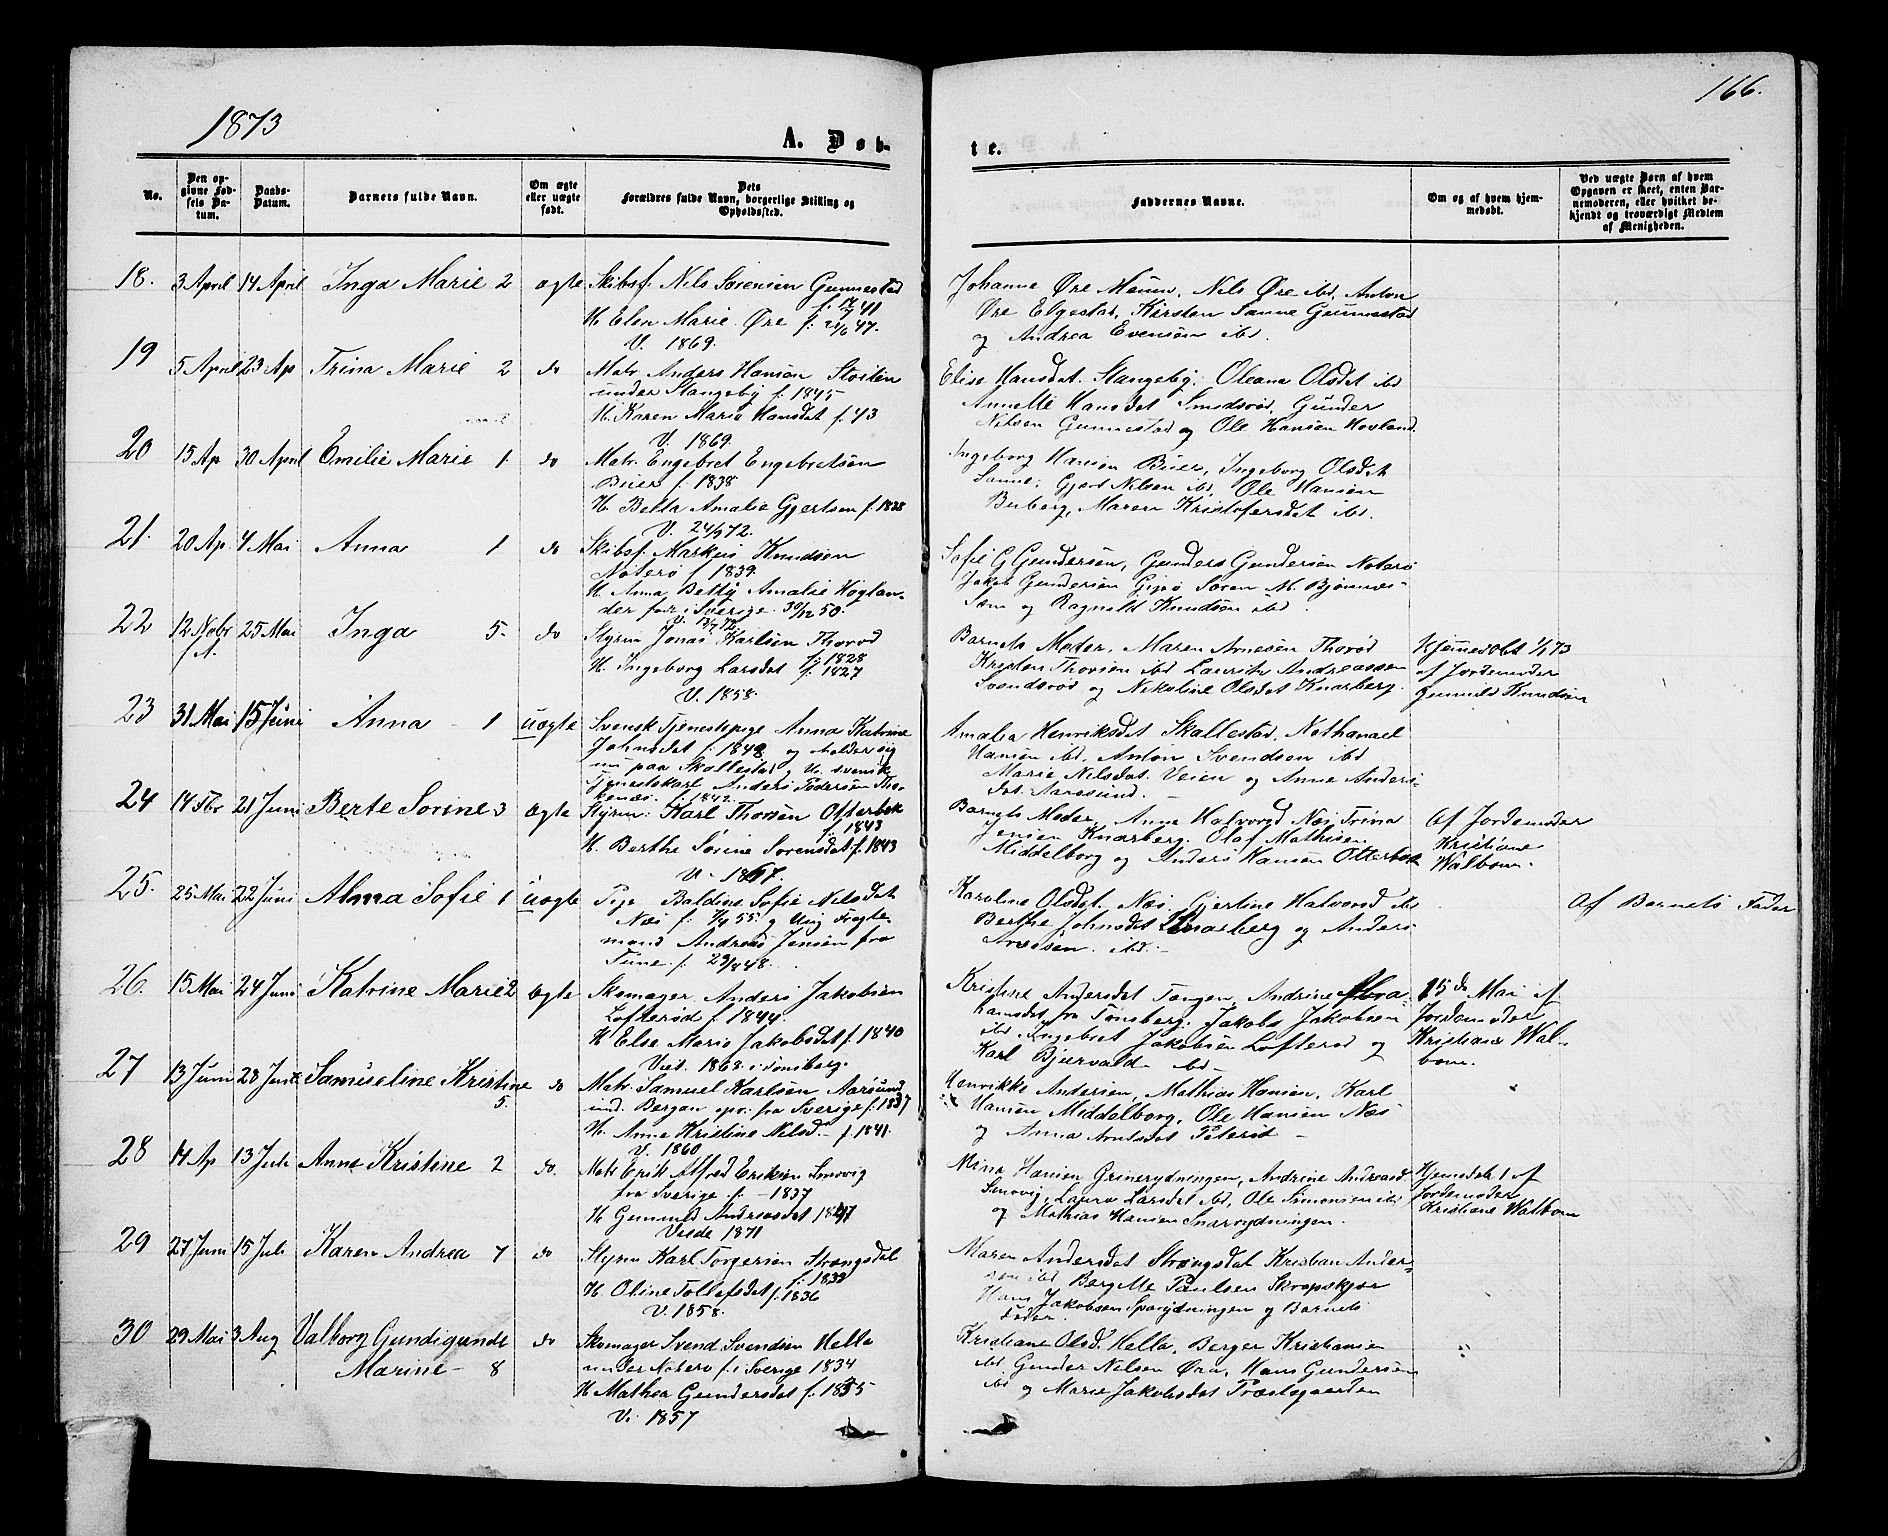 1873
166.
A. Døb-
te.
No.
Den op-
givne Fød-
sels Da-
tum.
Daabs-
Datum.
Barnets fulde Navn.
Om ægte
eller uægte
født.
Dets
Forældres fulde Navn, borgerlige Stilling og
Opholdssted.
Faddernes Navne.
Om og af hvem hjem-
medøbt.
Ved uægte Børn af hvem
Opgaven er skeet, enten Bar-
nemoderen, eller hvilket be-
kjendt og troværdigt Medlem
af Menigheden.
18. 3 April 14 April Inga Marie 2 ægte Skibsf. Nils Sørensen Gunnestad
H. Elen Marie Øre
V. 1869.
Johanne Øre Nils Øre ibd, Anton
Øre Elgestad, Kirsten Sanne Gunnestad
og Andrea Evensøn ibd.
19 5 April 23 Ap Trina Marie 2 do Matr. Anders Hansøn Stoiten
under Stangeby f. 1845
H. Karen Marie Hansdat f. 43
V. 1869.
Elise Hansdat. Stangeby. Oleana Olsdat ibd
Annette Hansdat Smidsrød, Gunder
Nilsen Gunnestad og Ole Hansen Hovland
20 15 Ap 30 April Emilie Marie 1 do Matr. Engebret Engebretsøn
Buer f. 1838
H. Betta Amalie Gjertsen f. 1838
V. 24/9 72.
Ingeborg Hansen Buer, Ingeborg Olsdat
Sanne, Gjert Nilsen ibd, Ole Hansen
Buberg, Maren Kristofersdat ibd.
21. 20 Ap. 4 Mai Anna 1 do Skibsf. Markus Knudsøn
Nøterø f 1839.
H. Anna Betty Amalie Høglan-
der fød i Sverige 50.
Sofie G Gundersøn, Gunders Gundersen Nøterø
Jakob Gundersen Gipø Søren M. Bjønnes-
Sem og Ragnild Knudsøn ibd.
22 12 Nobr 25 Mai Inga 5. do Styrm Jonas Karlsen Thorød
f. 1828
H. Ingeborg Larsdat f. 1827
V. 1858.
Barnets Moder, Maren Arnesen Thorød
Kristen Thorsen ibd Lauritz Andreassen
Svendsrød og Nikoline Olsdat Knarberg.
Hjemmedøbt 1/1 73
af Jordemoder
Gunnild Knudsen
23 31 Mai 15 Juni Anna 1 uægte Svensk Tjenestepige Anna Katrine
Johnsdat f. 1848 og holder sig
nu paa Skallestad og U. svensk
Tjenestekarl Anders Pedersøn
f. 1842.
Amalia Henriksdat Skallestad, Nathanael
Hansen ibd, Anton Svendsen ibd
Marie Nilsdat. Veien og Anne Anders-
dat. Aarøsund.
24 14 Fbr 21 Juni Berte Sorine 3 Ægte Styrm: Karl Thorsen Otterbek
f. 1843
H. Berthe Sørine Sørensdat f. 1843
V. 1867.
Barnets Moder, Anne Halvorsd Næs, Trina
Jensen Knarberg. Olaf Mathisen
Middelborg og Anders Hansen Otterbek
Af Jordemoder
Kristiane
Walbom.
25. 25 Mai 22 Juni Alma Sofie 1 uægte Pige Baldine Sofie Nilsdat
Næs f. 55 og Ung Fragte-
mand Andreas Jensen fra
Tune f. 23/4 48.
Karoline Olsdat. Næs. Gjertine Halvorsd ibd
Berthe Johnsdat Knarberg og Anders
Arvesen ibd.
Af Barnets Fader
26. 15 Mai 24 Juni Katrine Marie 2 Ægte Skomager Anders Jakobsen
Lofterød f. 1844.
H Else Marie Jakobsdat f. 1840
Vied. 1868 i Tønsberg.
Kristine Andersdat Tangen, Andrine Abra-
hamsdat fra Tønsberg. Jakob Jakobsen
ibd Engebret Jakobsen Lofterød og
Karl Bjervald ibd.
15de Mai af
Jordemoder
Kristiane Wal-
bom.
27 13 Juni 28 Juni Samueline Kristine 5. do Matr. Samuel Karlsen Aarøsund
und. Bergan opr. fra Sverige f. 1837
H. Anne Kristine Nilsd f. 1841.
V. 1860
Henrikke Andersen, Mathias Hansen, Karl
Hansen Middelborg, Ole Hansen Næs
og Anna Arntsdat
28 14 Ap 13 Juli Anne Kristine 2 do. Matr Erik Alfred Eriksen Smovig
fra Sverige f. 1837
H Gunnild Andreasdat
Viede 1871
Mina Hansen Grinerydningen, Andrine Andreasd.
Smovig, Laura Larsdat ibd, Ole Simonsen ibd
og Mathias Hansen Snarrydningen.
Hjemdøbt af
Jordemoder
Kristiane Walbom
29 27 Juni 15 Juli Karen Andrea 7 do Styrm Karl Torgersen Strengsdal
f. 1832
H. Oline Tollefsdat f. 1836
V. 1858.
Maren Andersdat Strengsdal Kristian Ander-
sen ibd Bergitte Paulsen Skropskjær
Hans Jakobsen Sparydningen og Barnets
Fader.
30 29 Mai 3 Aug Valborg Gundigunde
Marine 8 do Skomager Svend Svendsen Hella
under Nøterø f. i Sverige 1834
H Mathea Gundersdat f. 1835
V. 1857
Kristiane Olsd. Hella, Berger Kristiansen
ibd Gunder Nilsen Øra, Hans Gundersen
ibd og Marie Jakobsdat Præstegaarden